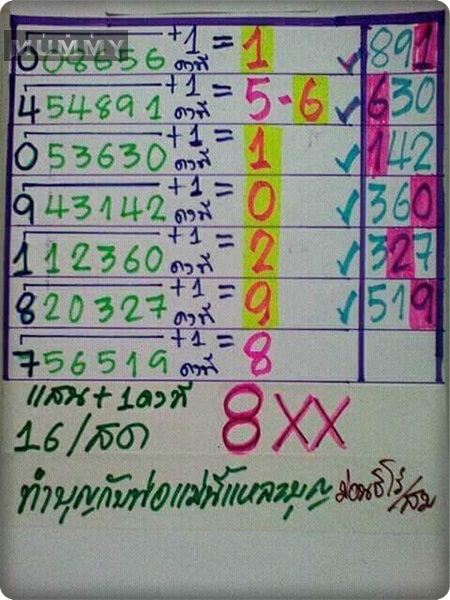 MUMMY
008656 +1 คงที่ = 1 ✓ 891
454891 +1 คงที่ = 5-6 ✓ 630
053630 +1 คงที่ = 1 ✓ 142
943142 +1 คงที่ = 0 ✓ 360
112360 +1 คงที่ = 2 ✓ 327
820327 +1 คงที่ = 9 ✓ 519
756519 +1 คงที่ = 8
แสน+1คงที่
16/สด 8XX
ทำบุญกับพ่อแม่นี้แหละบุญ